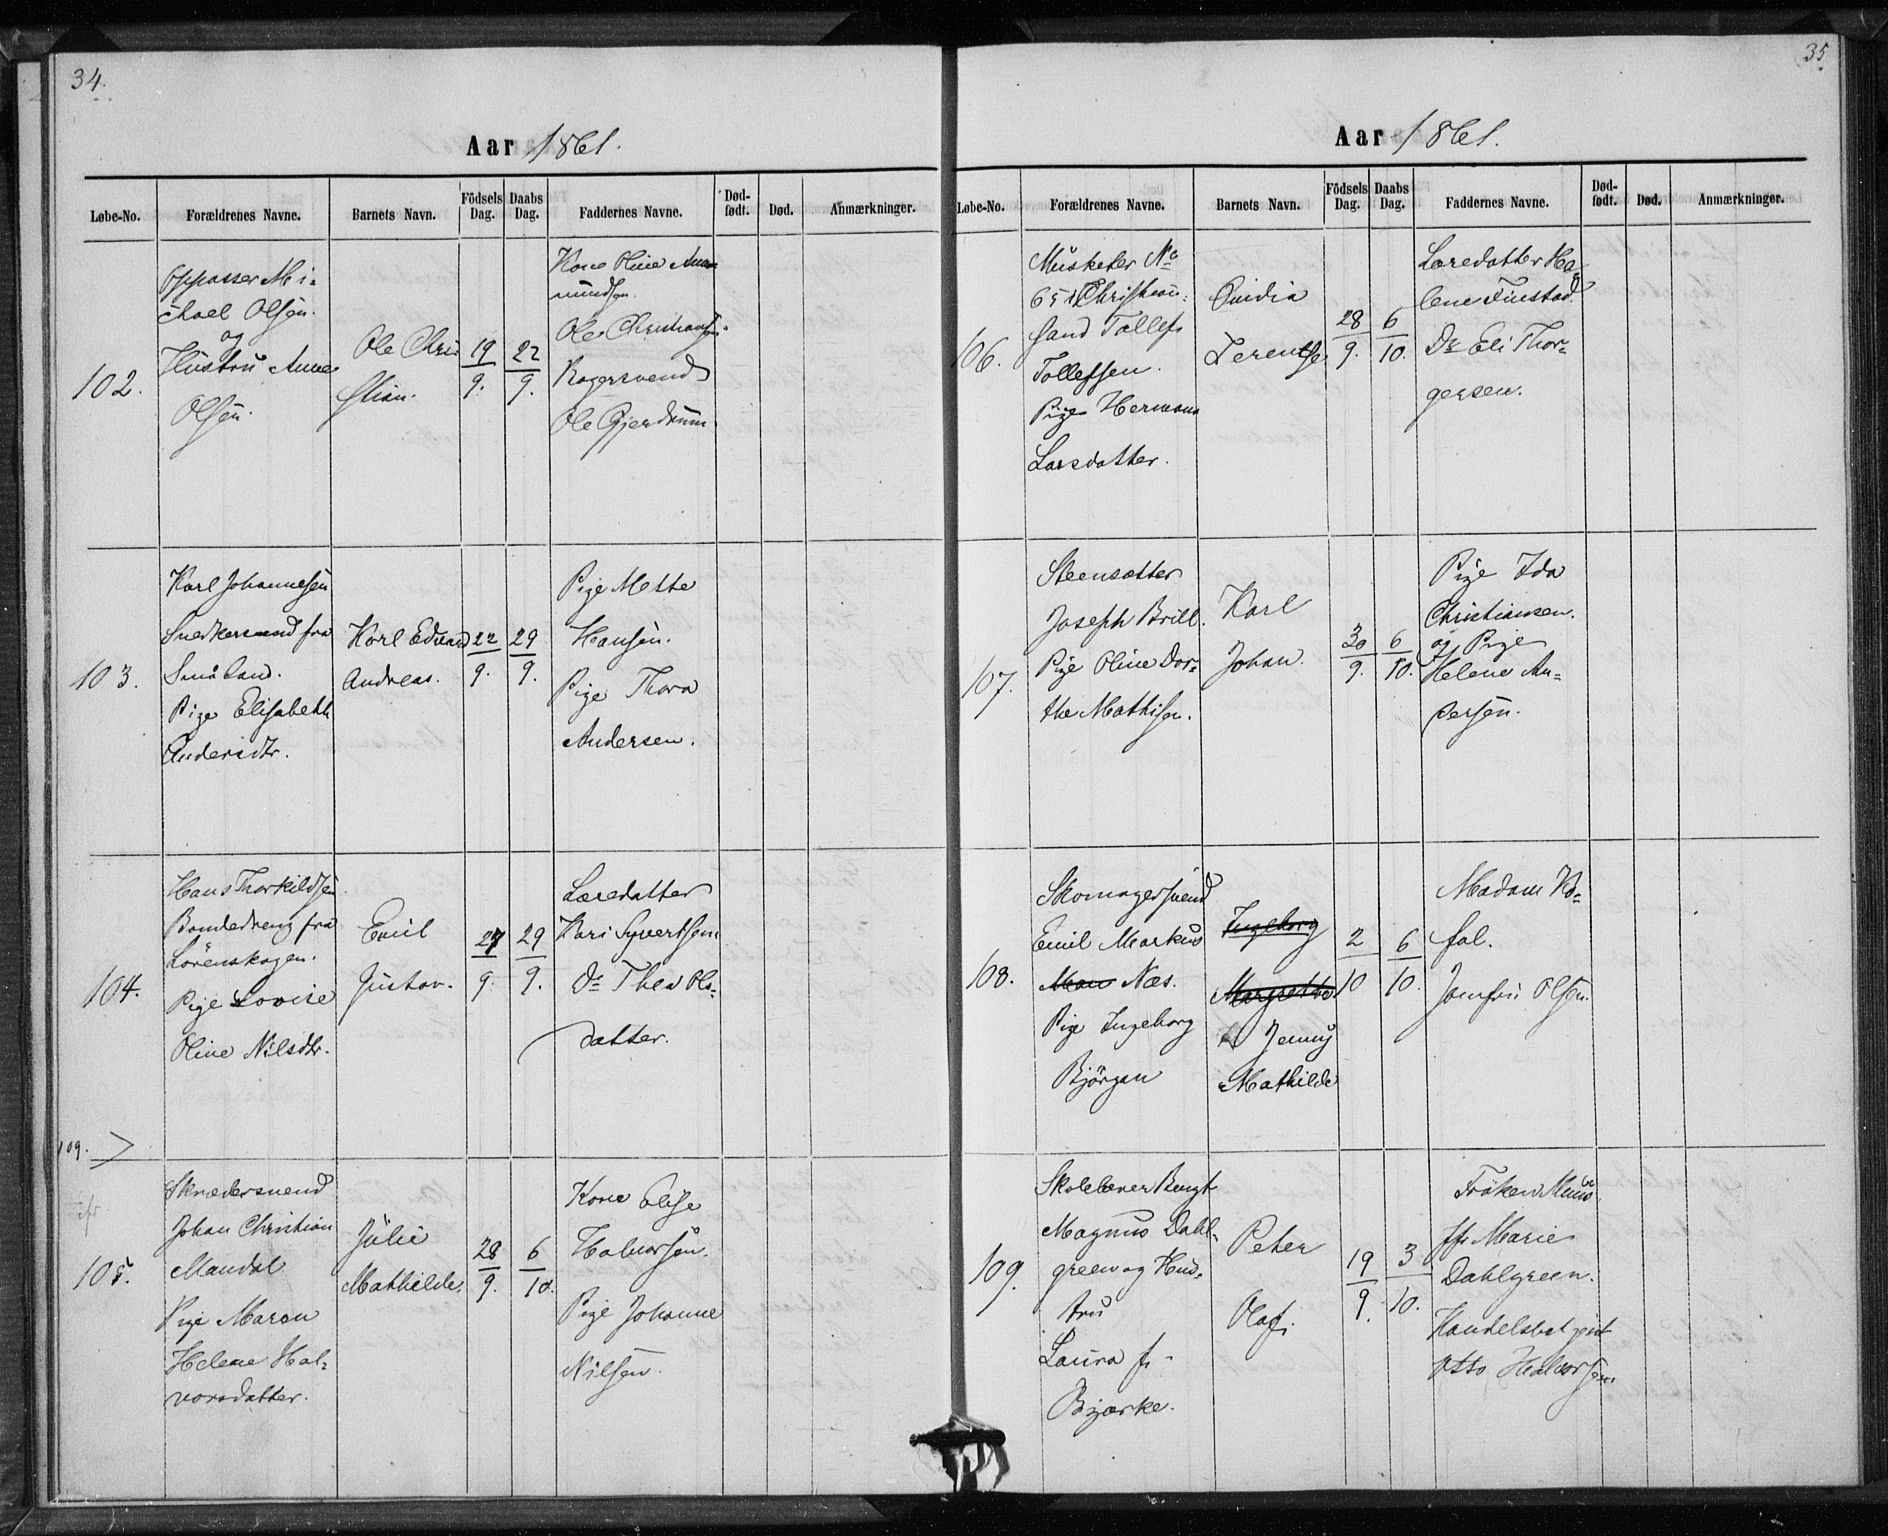 34.
Aar 1861.
Løbe-No. Forældrenes Navne. Barnets Navn. Födsels Dag. Daabs Dag. Faddernes Navne. Død-født. Død. Anmærkninger.
102.
Oppasser Mi-
chael Olsen.
og
Hustru Anne
Olsen.
Ole Chri
stian.
19
9.
22
9.
Kone Oline Amundsen.
Ole Christiansen.
Bagersvend
Ole Gjerdrum.
103.
Karl Johannesen
Snedkersvend fra
Småland.
Pige Elisabeth
Andersdtr.
Karl Edvard
Andreas.
22
9.
29
9.
Pige Mette
Hansen.
Pige Thora
Andersen.
104.
Hans Thorkildsen
Bondedreng fra
Lörenskogen.
Pige Lovise
Oline Nilsdtr.
Emil
Gustav.
27
9.
29
9.
Læredatter
Kari Syvertsen
Do Thea Ols-
datter.
109.
105.
Skrædersvend
Johan Christian
Mandal
Pige Maren
Helene Hal-
vorsdatter.
Julie
Mathilde.
28
9.
6
10.
Kone Elise
Halvorsen.
Pige Johanne
Nilsen.
35
Aar 1861.
Løbe-No. Forældrenes Navne. Barnets Navn. Födsels Dag. Daabs Dag. Faddernes Navne. Død-født. Død. Anmærkninger.
106.
Musketer No
651 Christian-
sand Tollef
Tollefsen.
Pige Hermana
Larsdatter.
Ovidia
Lerentse
28
9.
6
10.
Læredatter Ha-
lene Finstad.
Do Eli Thor-
gersen.
107.
Steensætter
Joseph Brill.
Pige Oline Dor-
the Mathisen.
Karl
Johan.
30
9.
6
10.
Pige Ida
Christiansen.
og Pige
Helene An-
dersen.
108.
Skomagersvend
Emil Markus
Man Næs.
Pige Ingeborg
Björgan
Ingeborg
Margrethe
Jenny
Mathilde
2
10
6
10.
Madam Ko-
fal.
Jomfru Olsen.
109.
Skolelærer Bengt
Magnus Dahl-
green og Hus-
tru
Laura f.
Bjerke.
Peter
Olaf.
19
9.
3
10.
Fröken
Jfr Marie
Dahlgreen.
Handelsbetjent
Otto Halvorsen